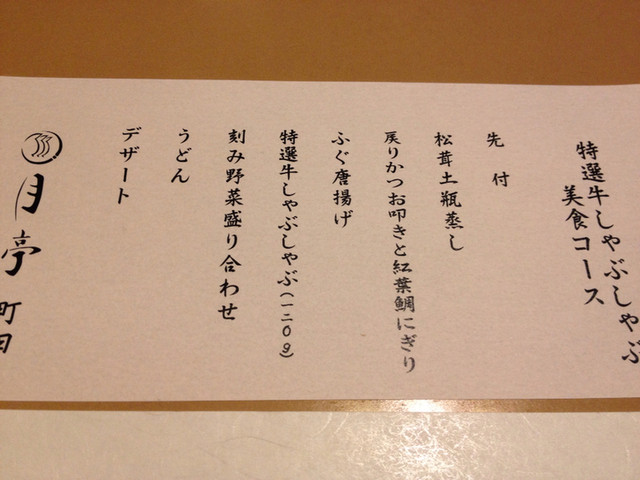 特選牛しゃぶしゃぶ
美食コース
先付
松茸土瓶蒸し
戻りかつお叩きと紅葉鯛にぎり
ふぐ唐揚げ
特選牛しゃぶしゃぶ(一二〇g)
刻み野菜盛り合わせ
うどん
デザート
月亭 町田